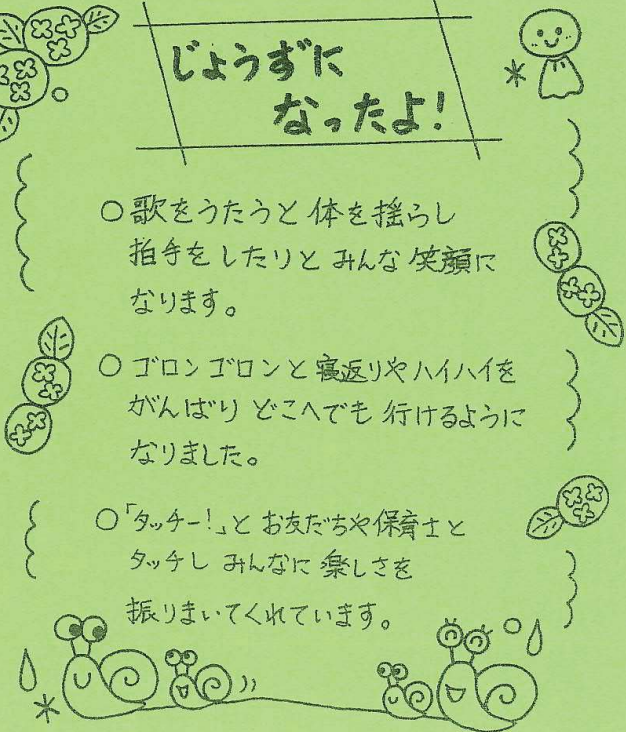 じょうずに
なったよ!
○歌をうたうと 体を揺らし
拍手をしたりと みんな 笑顔に
なります。
○ ゴロンゴロンと 寝返りやハイハイを
がんばり どこへでも 行けるように
なりました。
○「タッチー!」と お友だちや保育士と
タッチし みんなに 楽しさを
振りまいてくれています。